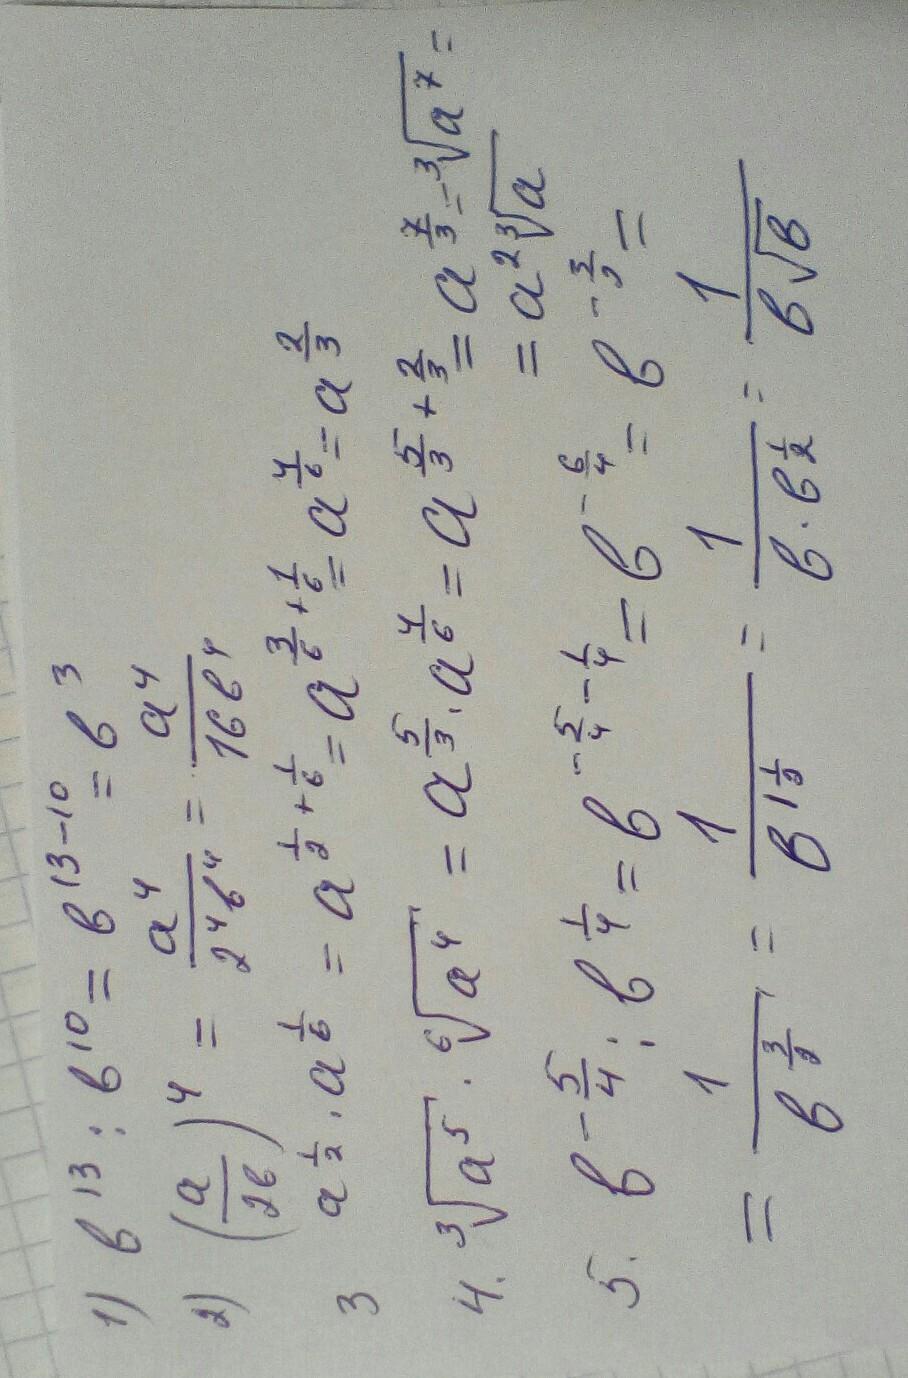 1) b¹³ : b¹⁰ = b¹³⁻¹⁰ = b³
2) (a/2b)⁴ = a⁴/2⁴b⁴ = a⁴/16b⁴
3 a^(1/2) · a^(1/6) = a^(1/2 + 1/6) = a^(3/6 + 1/6) = a^(4/6) = a^(2/3)
4. ³√a⁵ · ⁶√a⁴ = a^(5/3) · a^(4/6) = a^(5/3 + 2/3) = a^(7/3) = ³√a⁷ =
= a² ³√a
5. b^(-5/4) : b^(1/4) = b^(-5/4 - 1/4) = b^(-6/4) = b^(-3/2) =
= 1/b^(3/2) = 1/b^(1 1/2) = 1/(b · b^(1/2)) = 1/(b√b)